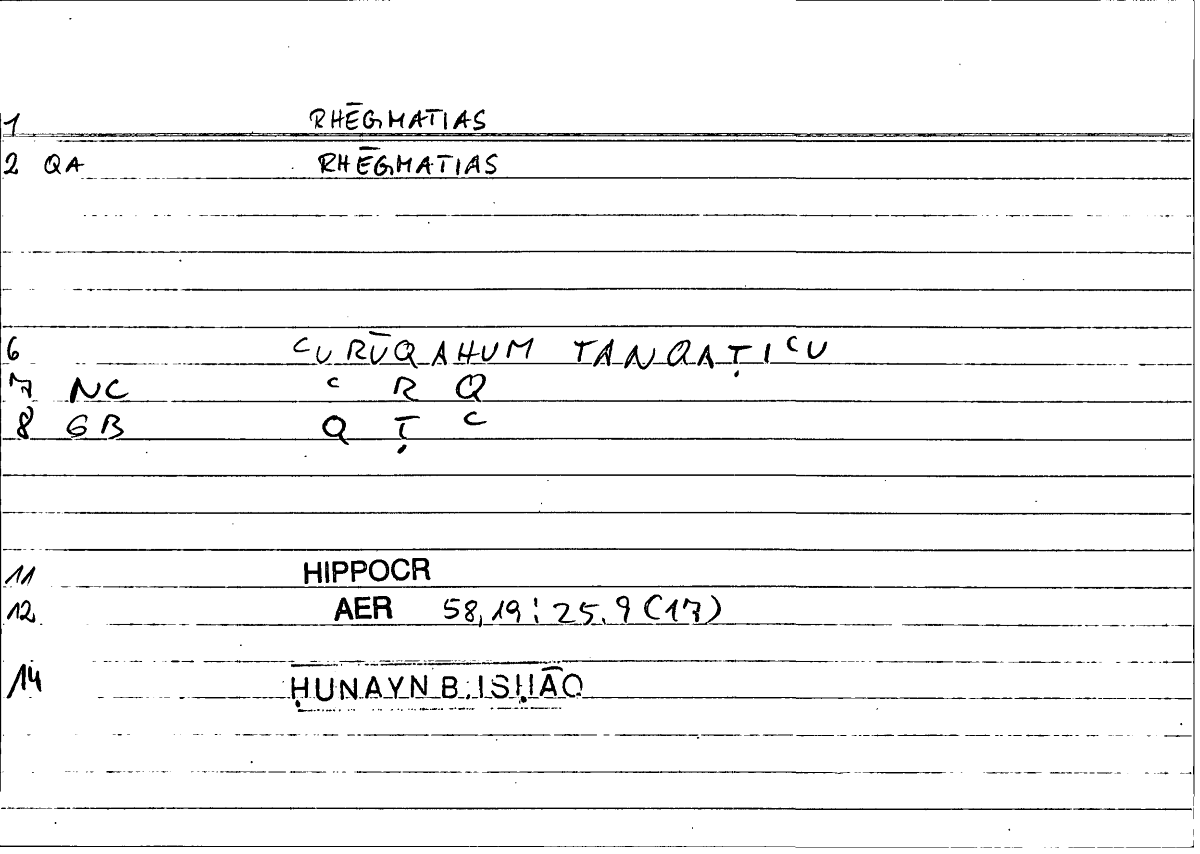 1 RHĒGMATIAS
2 QA RHĒGMATIAS
6 ᶜURŪQAHUM TANQAṬIᶜU
7 NC ᶜ R Q
8 GB Q Ṭ ᶜ
11 HIPPOCR
12 AER 58,19 : 25.9 (17)
14 ḤUNAYN B. ISḤĀQ